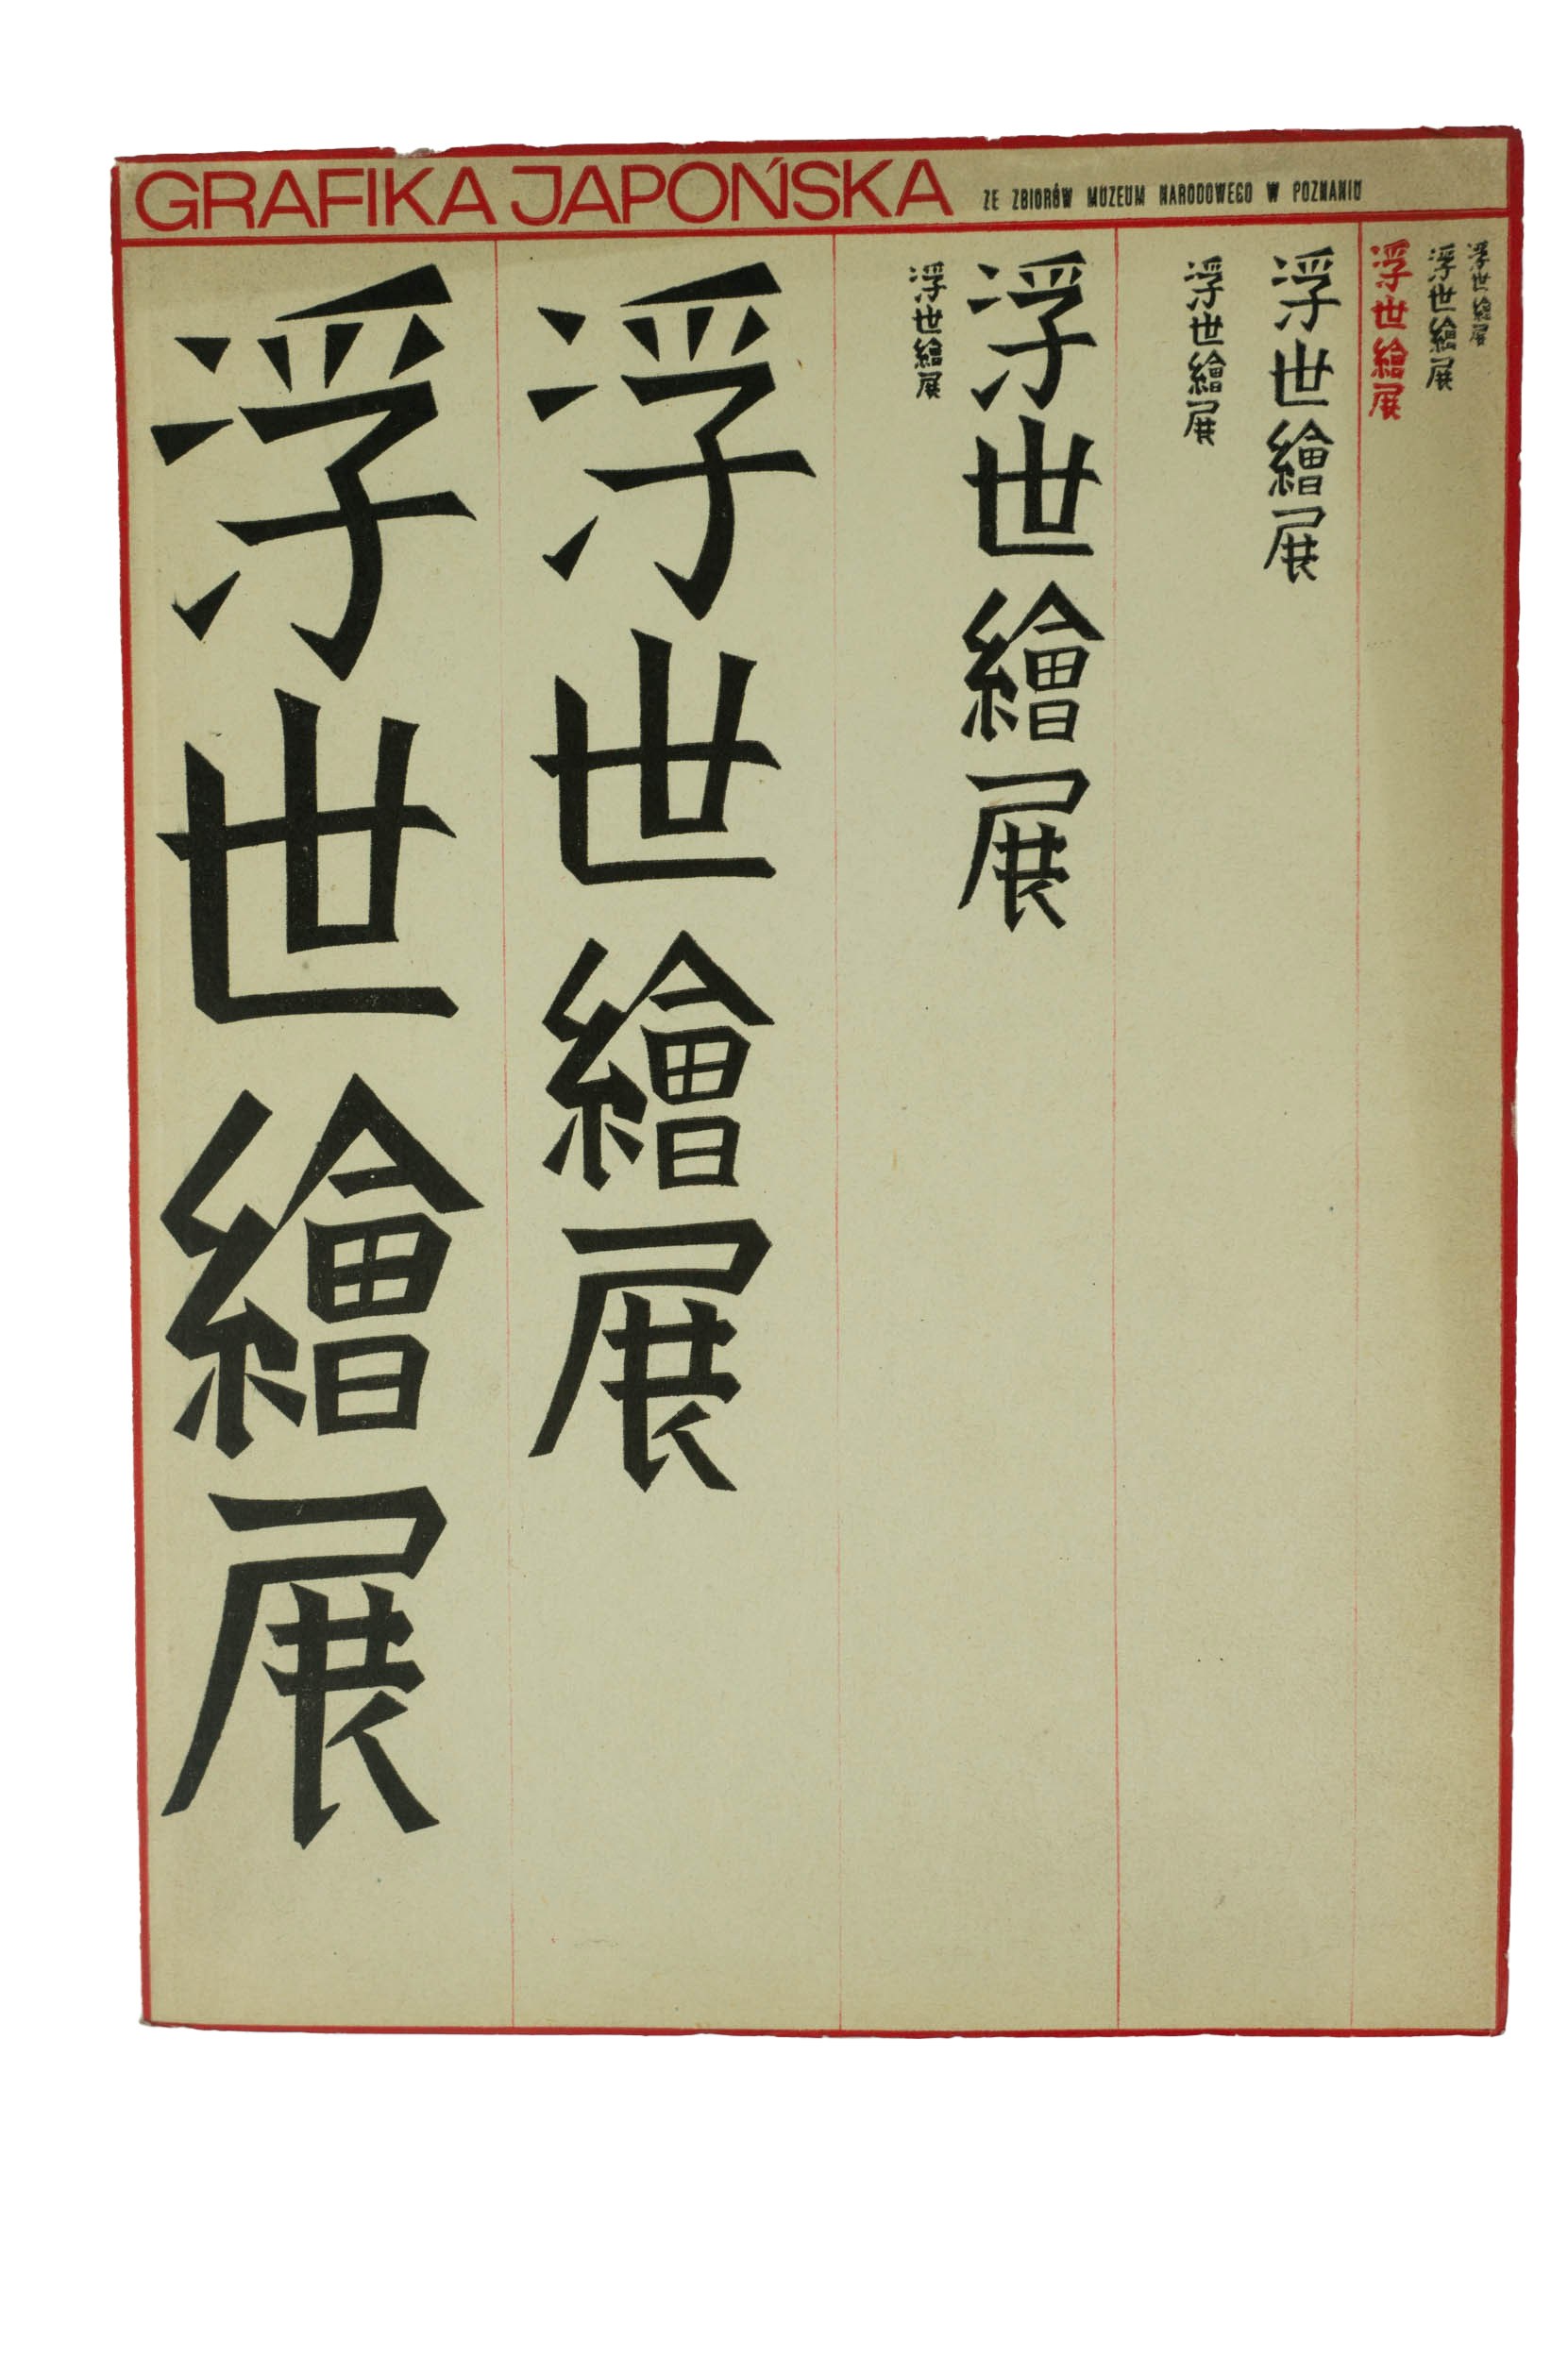 GRAFIKA JAPOŃSKA
ZE ZBIORÓW MUZEUM NARODOWEGO W POZNANIU
浮世繪展
浮世繪展
浮世繪展
浮世繪展
浮世繪展
浮世繪展
浮世繪展
浮世繪展
浮世繪展